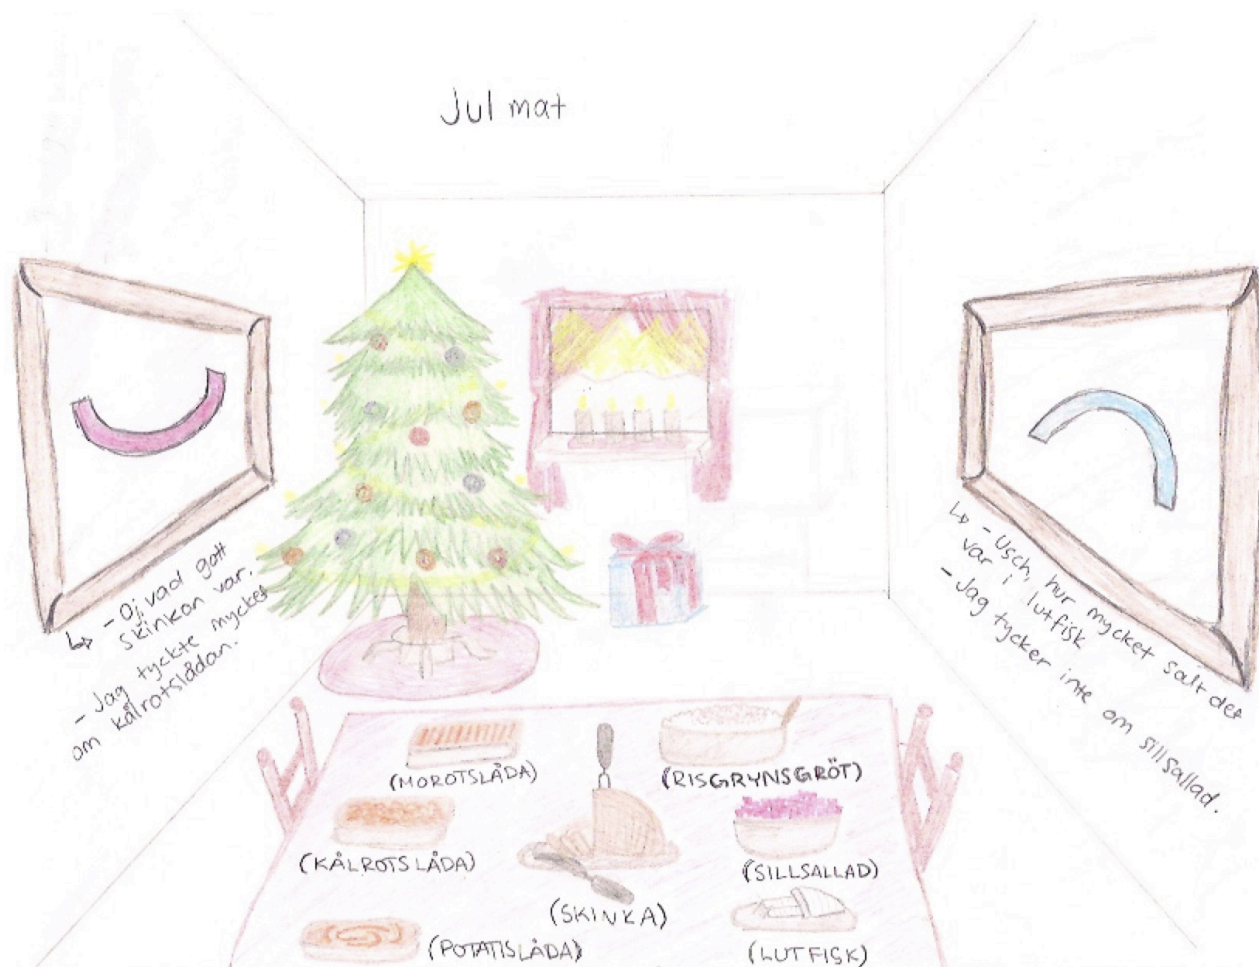 Jul mat
↳ - Oj, vad gott
skinkan var.
- Jag tyckte mycket
om kålrotslådan.
↳ - Usch, hur mycket salt det
var i lutfisk
- Jag tycker inte om sillsallad.
(MOROTSLÅDA)
(RISGRYNSGRÖT)
(KÅLROTSLÅDA)
(SILLSALLAD)
(SKINKA)
(POTATISLÅDA)
(LUTFISK)